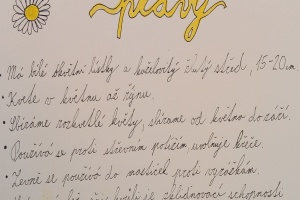 pravý
• Má bílé okvětní lístky a kuželovitý žlutý střed, 15-20cm.
• Kvete v květnu až říjnu.
• Sbíráme rozkvetlé květy, sbíráme od května do září.
• Používá se proti střevním potížím, uvolňuje křeče.
• Zevně se používá do mastiček proti vyrážkám.
je zklidňovací schopnosti